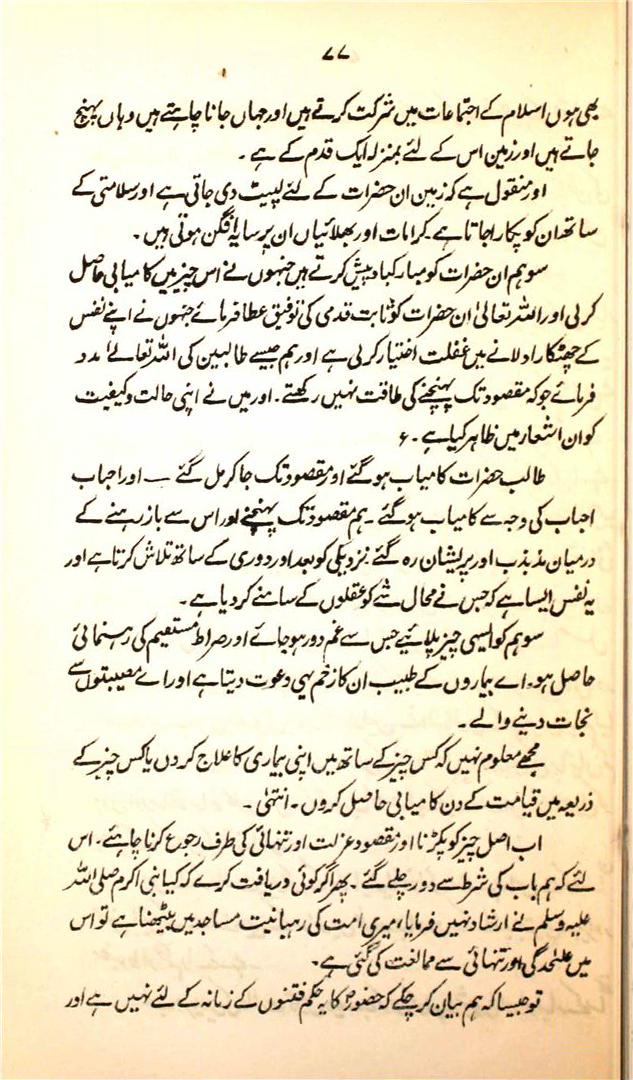 ۷۷
بھی ہوں اسلام کے اجتماعات میں شرکت کرتے ہیں اور جہاں جانا چاہتے ہیں وہاں پہنچ
جاتے ہیں اور زمین اس کے لئے بمنزلہ ایک قدم کے ہے ۔
اور منقول ہے کہ زمین ان حضرات کے لئے لپیٹ دی جاتی ہے اور سلامتی کے
ساتھ ان کو پکارا جاتا ہے کرامات اور بھلائیاں ان پر سایہ افگن ہوتی ہیں ۔
سو ہم ان حضرات کو مبارکباد پیش کرتے ہیں جنہوں نے اس چیز میں کامیابی حاصل
کر لی اور اللہ تعالیٰ ان حضرات کو ثابت قدمی کی توفیق عطا فرمائے جنہوں نے اپنے نفس
کے چھٹکارا دلانے میں غفلت اختیار کر لی ہے اور ہم جیسے طالبین کی اللہ تعالےٰ مدد
فرمائے جو کہ مقصود تک پہنچنے کی طاقت نہیں رکھتے ۔ اور میں نے اپنی حالت و کیفیت
کو ان اشعار میں ظاہر کیا ہے ۔ ۶
طالب حضرات کامیاب ہو گئے اور مقصود تک جا کر مل گئے ــ اور احباب
احباب کی وجہ سے کامیاب ہو گئے ۔ ہم مقصود تک پہنچنے اور اس سے باز رہنے کے
درمیان مذبذب اور پریشان رہ گئے نزدیکی کو بعد اور دوری کے ساتھ تلاش کرتا ہے اور
یہ نفس ایسا ہے کہ جس نے محال شے کو عقلوں کے سامنے کر دیا ہے ۔
سو ہم کو ایسی چیز پلائیے جس سے غم دور ہو جائے اور صراط مستقیم کی رہنمائی
حاصل ہو ۔ اے بیماروں کے طبیب ان کا زخم یہی دعوت دیتا ہے اور اے مصیبتوں سے
نجات دینے والے ۔
مجھے معلوم نہیں کہ کس چیز کے ساتھ میں اپنی بیماری کا علاج کر دوں یا کس چیز کے
ذریعہ میں قیامت کے دن کامیابی حاصل کروں ۔ انتہٰی ۔
اب اصل چیز کو پکڑنا اور مقصود عزلت اور تنہائی کی طرف رجوع کرنا چاہئے ۔ اس
لئے کہ ہم باب کی شرط سے دور چلے گئے ۔ پھر اگر کوئی دریافت کرے کہ کیا نبی اکرم صلی اللہ
علیہ وسلم نے ارشاد نہیں فرمایا ، میری امت کی رہبانیت مساجد میں بیٹھنا ہے تو اس
میں علٰحدگی اور تنہائی سے ممالغت کی گئی ہے ۔
تو جیسا کہ ہم بیان کر چکے کہ حضورؐ کا یہ حکم فتنوں کے زمانہ کے لئے نہیں ہے اور